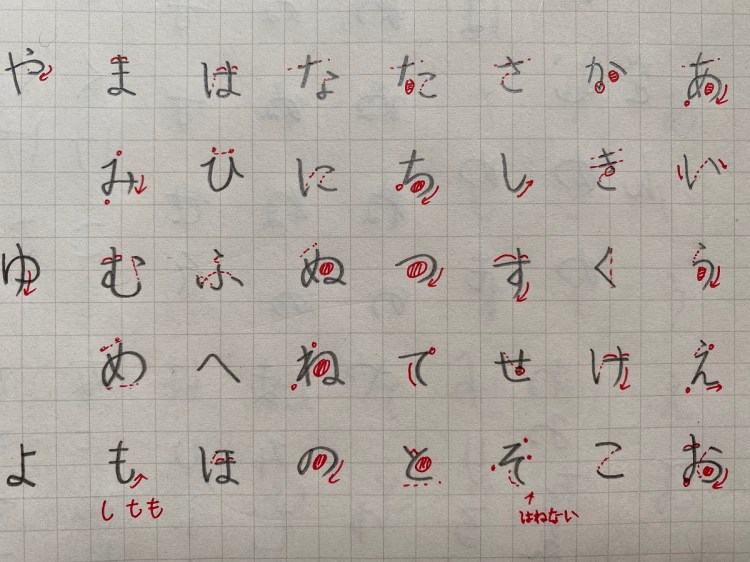 あいうえお
かきくけこ
さしすせそ
はねない
たちつてと
なにぬねの
はひふへほ
まみむめも
し も
やゆよ